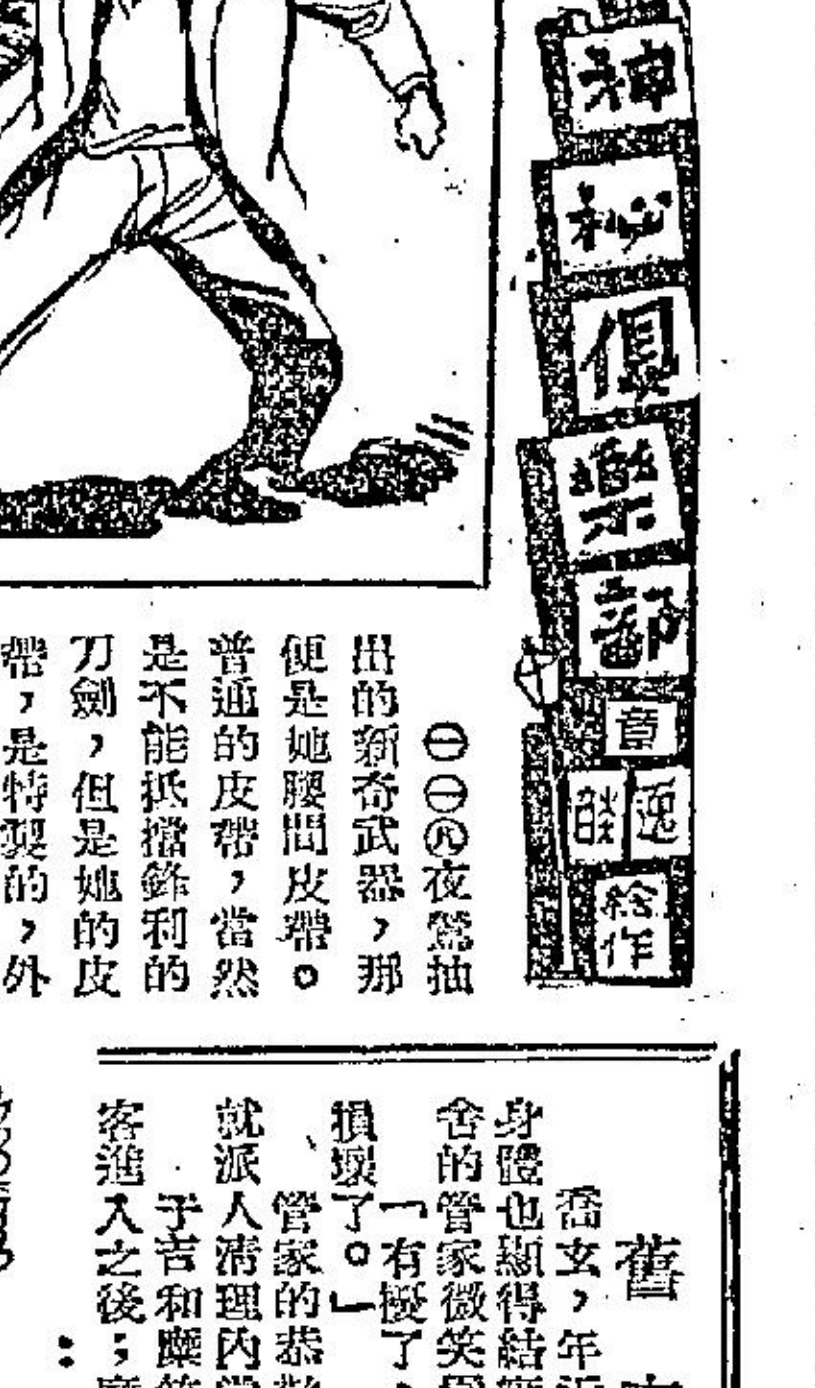 神秘俱樂部
章
逸
繪作
㊀㊀㊇夜鶯抽
出的新奇武器，那
便是她腰間皮帶。
普通的皮帶，當然
是不能抵擋鋒利的
刀劍，但是她的皮
帶，是特製的，外
舊
喬玄，年近
身體也顯得結
舍的管家微笑
「有擾了，
損壞了。」
管家的恭
就派人清理內堂
于吉和糜
客進入之後；